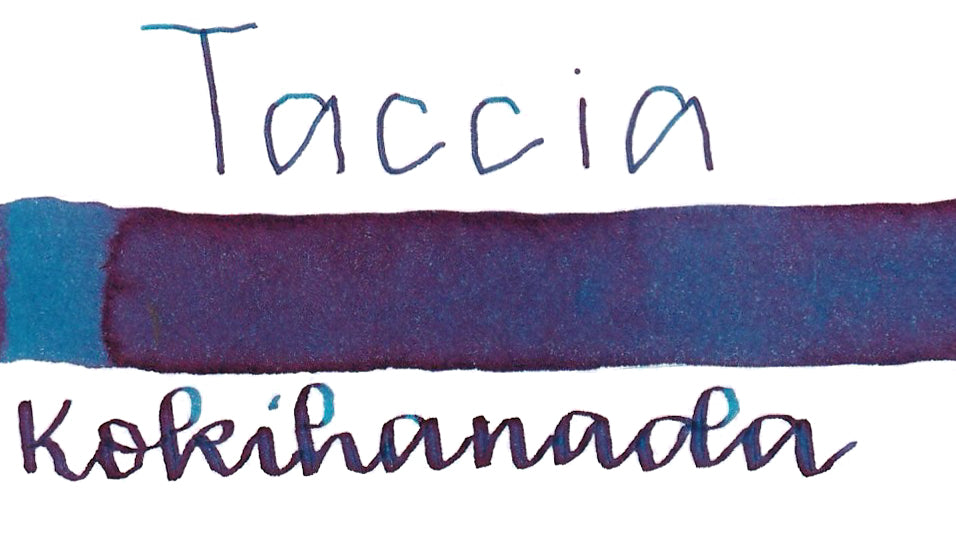 Taccia
Kokihanada